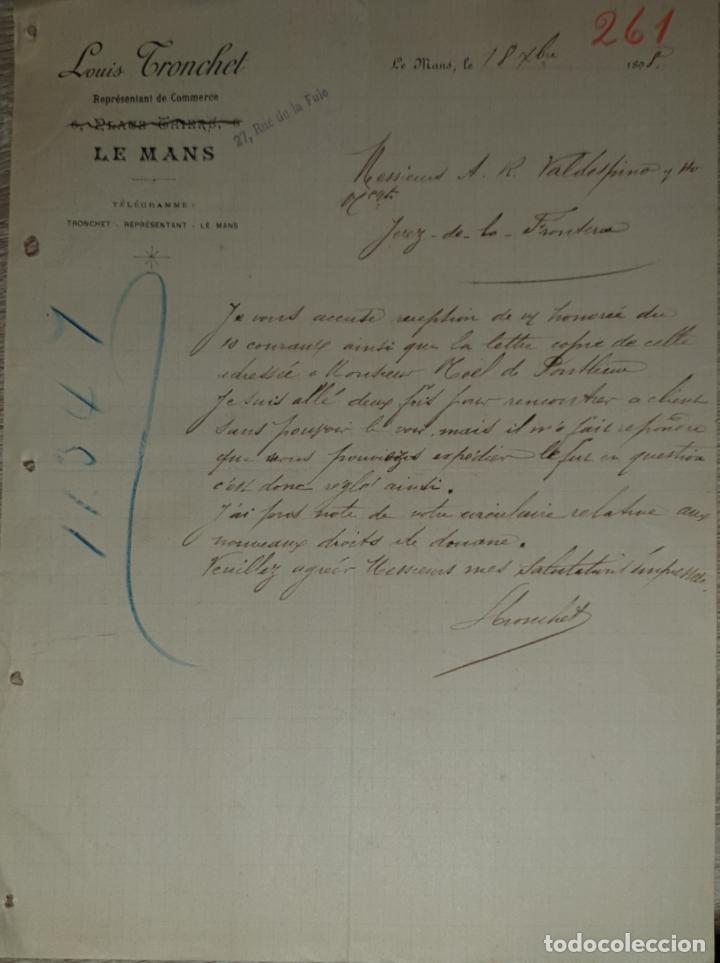 261
Louis Tronchet
Représentant de Commerce
6, PLACE THIERS, 6
27, Rue de la Fuie
LE MANS
TÉLÉGRAMME:
TRONCHET - REPRÉSENTANT - LE MANS
Le Mans, le 18 Xbre 1898
Messieurs A. R. Valdespino y Ho
Jerez-de-la-Frontera
11347
Je vous accuse reception de v/ honorée du
10 courant ainsi que la lettre copie de celle
adressée a Monsieur Noël de Pontlieue
Je suis allé deux fois pour rencontrer ce client
sans pouvoir le voir, mais il m'a fait repondre
que vous pouviez expédier le fut en question
c'est donc reglé ainsi.
J'ai pris note de votre circulaire relative aux
nouveaux droits de douane.
Veuillez agréer Messieurs mes salutations empressées
LTronchet
todocoleccion